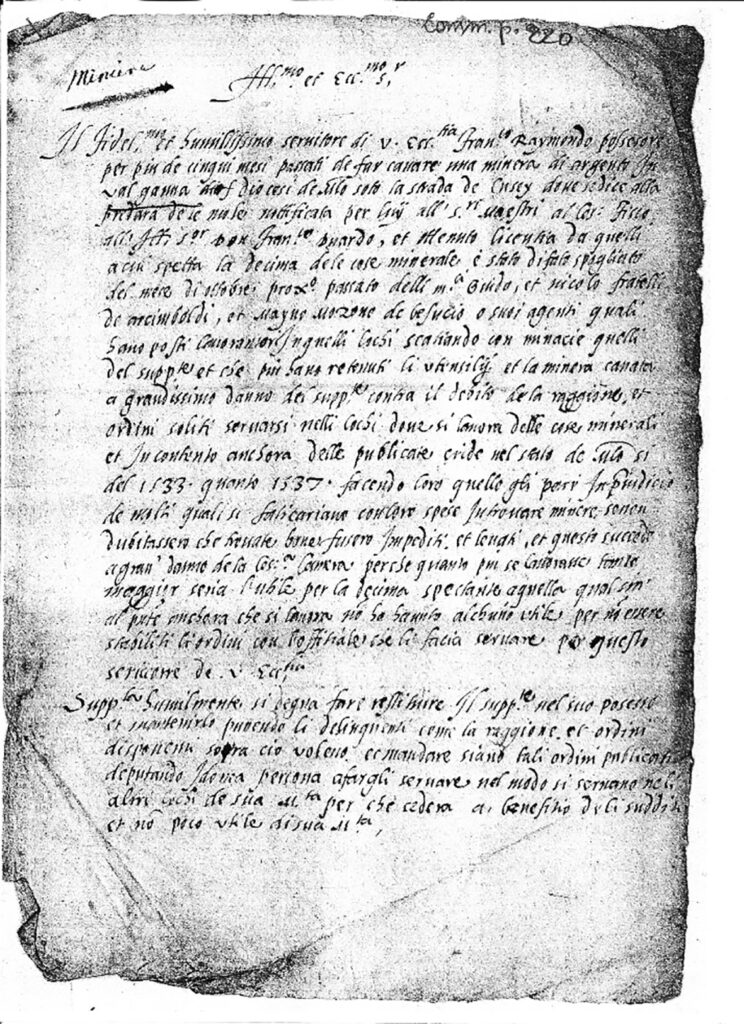 Comm. p. 220
Miniere
Ill.mo et Ecc.mo S.r
Il fidel.mo et humilissimo servitore di V. Ecc.tia Fran.co Raymondo possesore
per piu de cinqui mesi passati de far cavare una minera di argento In
val ganna diocesi de Mlo soto la strada de dove se dice alla
predara de le mole nottificata per luy all' s.ri Maestri al Ces. fisco
all' Ill. S.or Don Fran.co Duardo, et ottenuto licentia da quelli
a cui spetta la decima dele cose minerale è stato di fato spogliato
del mese di ottobre prox.o passato delli m.ci Guido, et nicolo fratelli
de arcimboldi, et Mayno Morzone de besucio o suoi agenti quali
hano posti lavoratori In quelli lochi scatiando con minacie quelli
del supp.te et che piu hano retenuti li utensilij et la minera cavata
a grandissimo danno del supp.te contra il debito de la raggione, et
ordini soliti servarsi nelli lochi dove si lavora delle cose minerali
et In contento anchora delle publicate cride nel stato de Mlo si
del 1533. quanto 1537. facendo loro quello gli pare In p'iudicio
de molti quali si faticariano con loro spese In trovare minere, se non
dubitassero che trovate bone fusero Impediti, et levati, et questo succede
a gran' danno de la Ces.a Camera perche quanto piu se lavorasse tanto
maggior seria l'utile per la decima spectante a quella qual sin'
al p'nte anchora che si lavora nō ha havuto alchuno utile per nō essere
stabiliti li ordini con l'offitiale che li facia servare per questo
se ricorre de V. Ecc.tia
Supp.do humilmente si degna fare restituire Il supp.te nel suo posesso
et mantenirlo punendo li delinquenti come la raggione, et ordini
disponeno sopra cio voleno et mandare siano tali ordini publicati
deputando Idonea persona a fargli servare nel modo si servano neli
altri lochi de sua M.ta per che cedera a benefitio deli sudditi
et nō poco utile di sua M.ta,